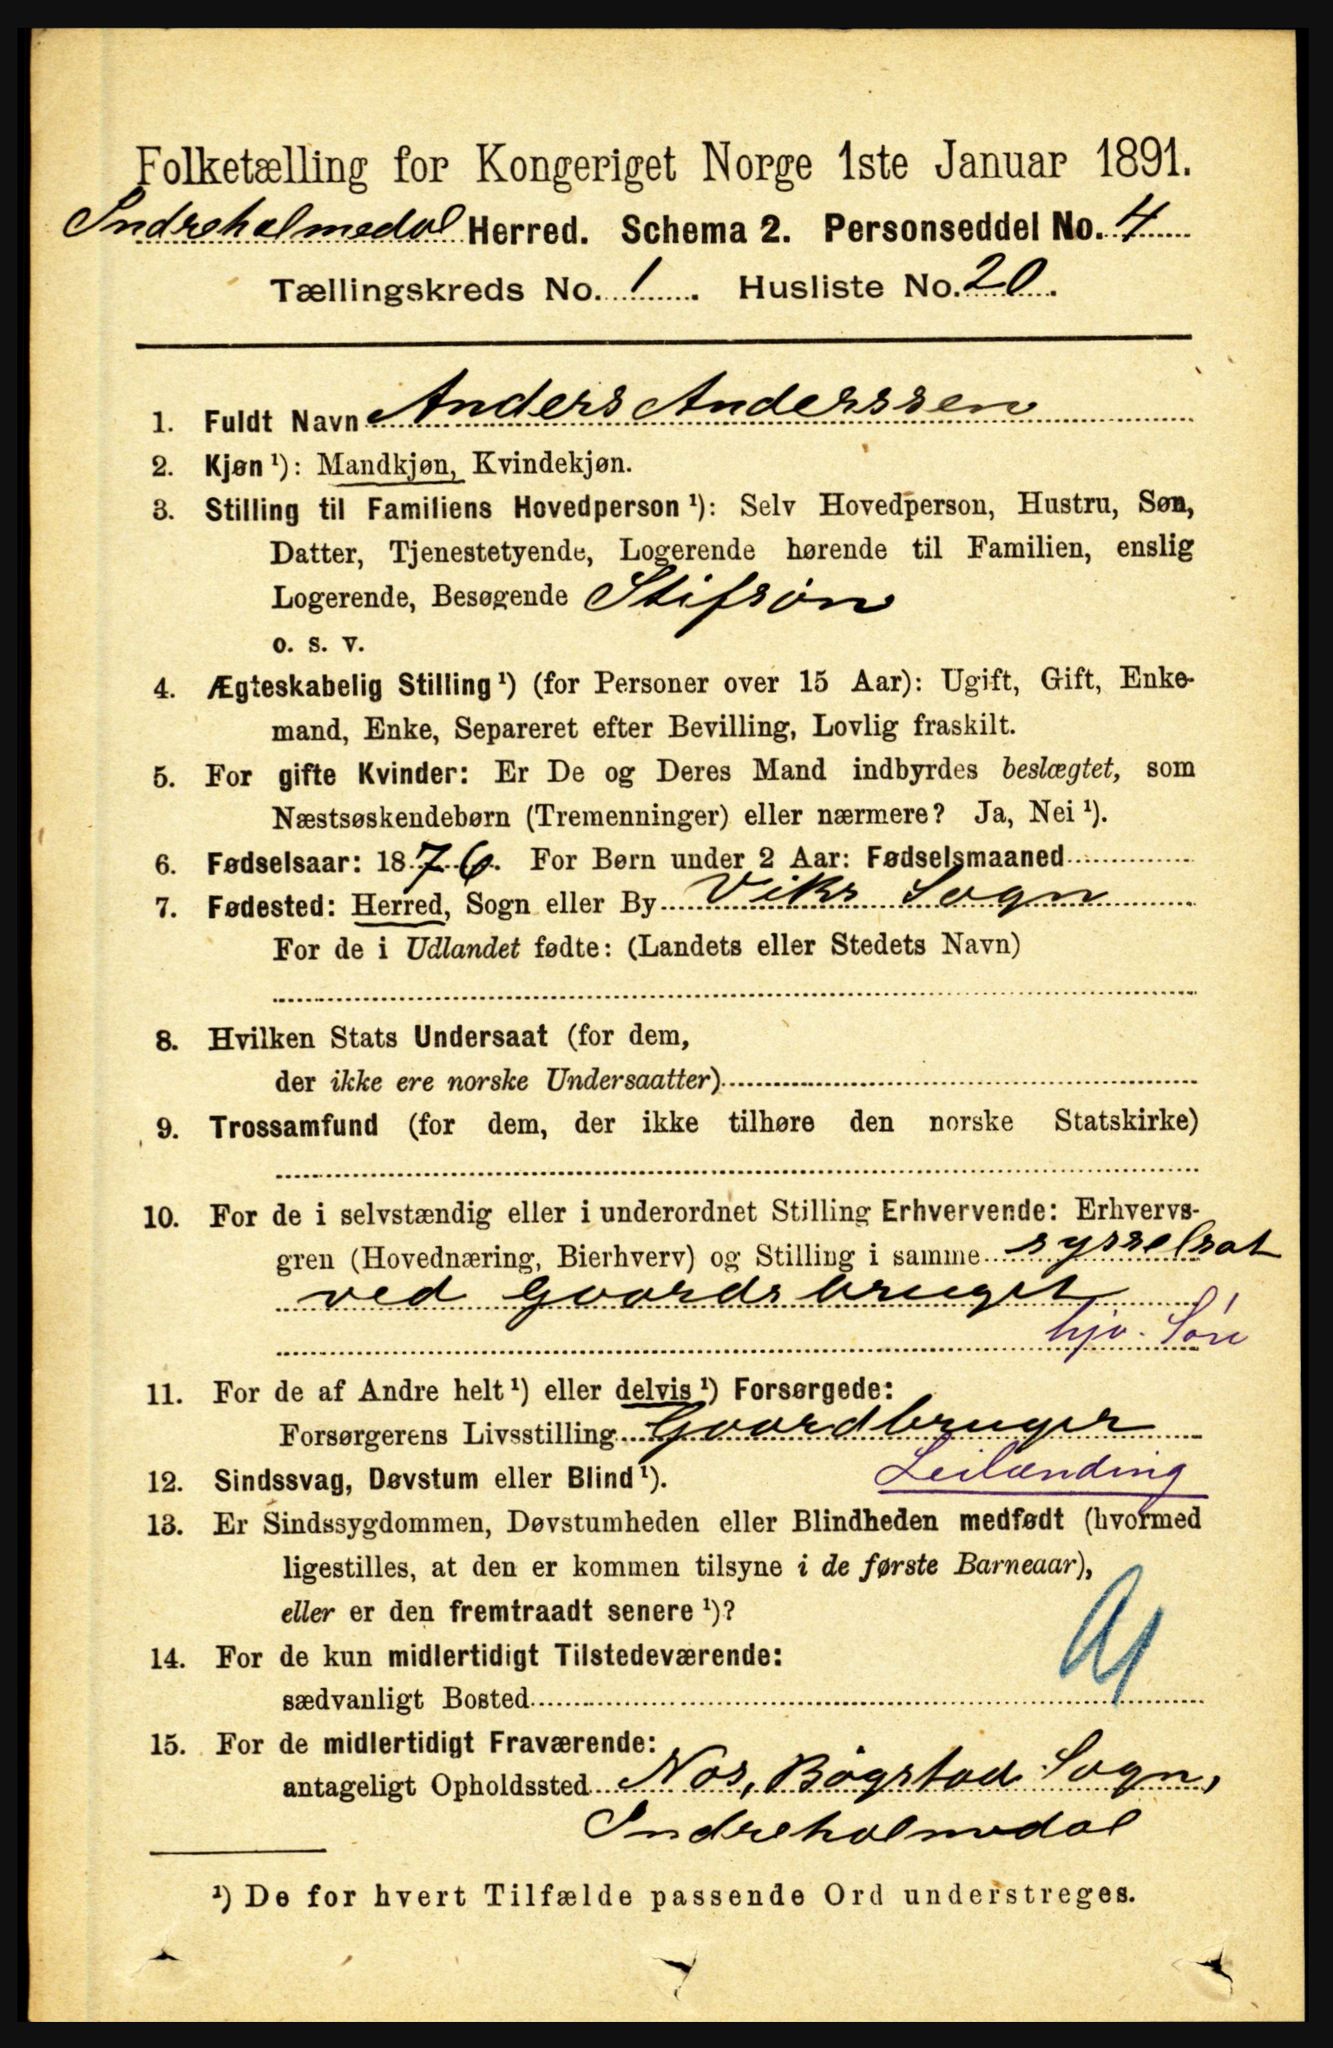 Folketælling for Kongeriget Norge 1ste Januar 1891.
Indreholmedal Herred. Schema 2. Personseddel No. 4
Tællingskreds No. 1. Husliste No. 20.
1. Fuldt Navn Anders Anderssen
2. Kjøn ¹): Mandkjøn, Kvindekjøn.
3. Stilling til Familiens Hovedperson ¹): Selv Hovedperson, Hustru, Søn,
Datter, Tjenestetyende, Logerende hørende til Familien, enslig
Logerende, Besøgende Stifsøn
o. s. v.
4. Ægteskabelig Stilling ¹) (for Personer over 15 Aar): Ugift, Gift, Enke-
mand, Enke, Separeret efter Bevilling, Lovlig fraskilt.
5. For gifte Kvinder: Er De og Deres Mand indbyrdes beslægtet, som
Næstsøskendebørn (Tremenninger) eller nærmere? Ja, Nei ¹).
6. Fødselsaar: 1876. For Børn under 2 Aar: Fødselsmaaned
7. Fødested: Herred, Sogn eller By Viks Sogn
For de i Udlandet fødte: (Landets eller Stedets Navn)
8. Hvilken Stats Undersaat (for dem,
der ikke ere norske Undersaatter)
9. Trossamfund (for dem, der ikke tilhøre den norske Statskirke)
10. For de i selvstændig eller i underordnet Stilling Erhvervende: Erhvervs-
gren (Hovednæring, Bierhverv) og Stilling i samme sysselsat
ved Gaardsbruget
hjv. Søn
11. For de af Andre helt ¹) eller delvis ¹) Forsørgede:
Forsørgerens Livsstilling Gaardbruger
12. Sindssvag, Døvstum eller Blind ¹). Leilænding
13. Er Sindssygdommen, Døvstumheden eller Blindheden medfødt (hvormed
ligestilles, at den er kommen tilsyne i de første Barneaar),
eller er den fremtraadt senere ¹)?
14. For de kun midlertidigt Tilstedeværende:
sædvanligt Bosted
15. For de midlertidigt Fraværende:
antageligt Opholdssted Nos, Bøgstad Sogn,
Indreholmedal
¹) De for hvert Tilfælde passende Ord understreges.